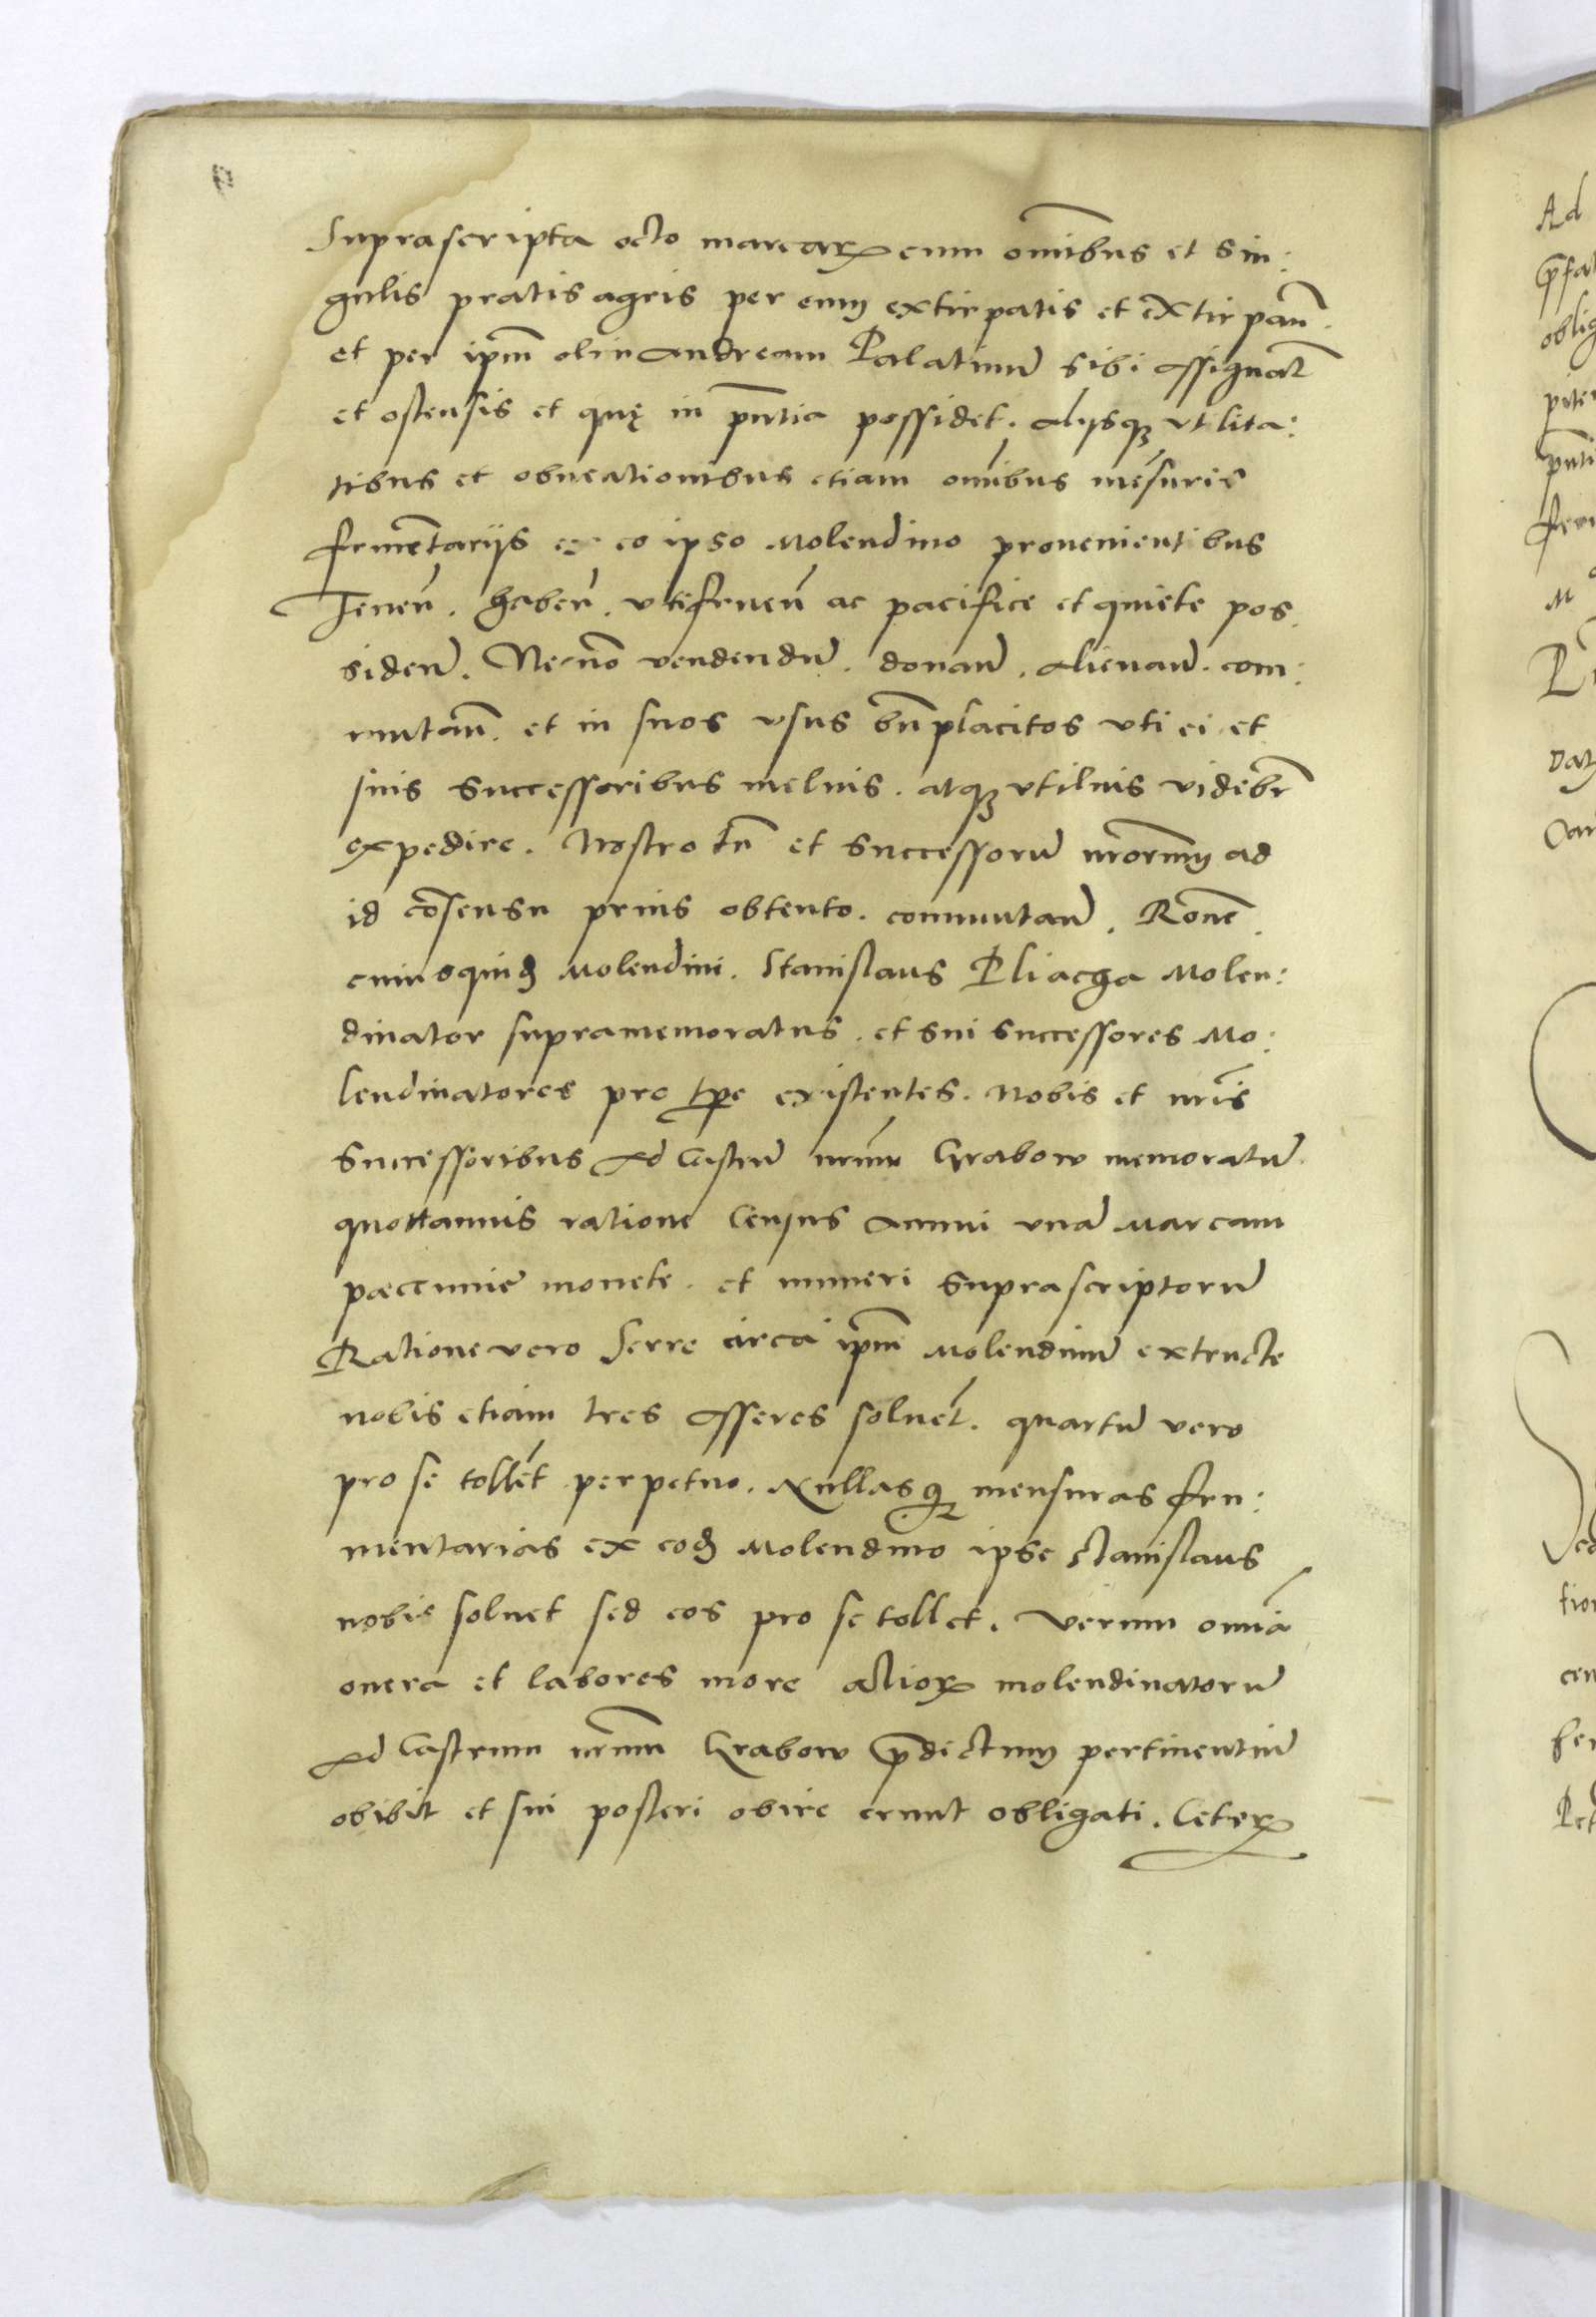 Suprascripta octo marcarꝝ cum om̄ibus et sin:
gulis pratis agris per eum extirpatis et extirpan̄.
et per ip̄m olim Andream Palatinū sibi assignat̄
et ostensis et quę in p̄ntia possidet. alijsqꝫ vtilita:
tibus et obuentionibus etiam om̄ibus mēsuris
frumētarijs ex eo ipso Molendino prouenientibus
Tenen̄. haben̄. vtifruen̄ ac pacifice et quiete pos.
siden̄. Necnō vendendū. donan̄. alienan̄. com:
mutan̄. et in suos vsus bn̄placitos vti ei et
suis successoribus melius. atqꝫ vtilius videbr̄
expedire. Nostro tn̄ et successorū nr̄orum ad
id cōsensu prius obtento. commutan̄. Rōne
cuiusquidē Molendini. Stanislaus Pliacha Molen:
dinator supramemoratus. et sui successores Mo:
lendinatores pro tp̄e existentes. Nobis et nr̄is
successoribus Ad Castrū nr̄um Grabow memoratū.
quottannis ratione Census annui vnā Marcam
paecunie monete. et numeri suprascriptorū
Ratione vero Serre circa ip̄m Molendinū extructe
nobis etiam tres asseres soluēt. quartū vero
pro se tollēt perpetuo. Nullasqꝫ mensuras fru:
mentarias ex eodē Molendino ipse Stanislaus
nobis soluet sed eos pro se tollet. Verum omnia
onera et labores more alior̄ꝝ molendinatorū
Ad Castrum nr̄um Grabow p̄dictum pertinentiū
obibit et sui posteri obire erunt obligati. Ceterꝝ
Ad